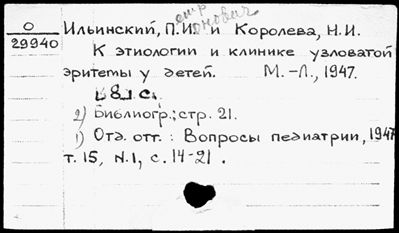 О
29940
Ильинский, П.И. и Королева, Н.И.
К этиологии и клинике узловатой
эритемы у детей. М.-Л., 1947.
8 с.
2) Библиогр.: стр. 21.
1) Отд. отт.: Вопросы педиатрии, 1947
т. 15, N.1, с. 14-21.